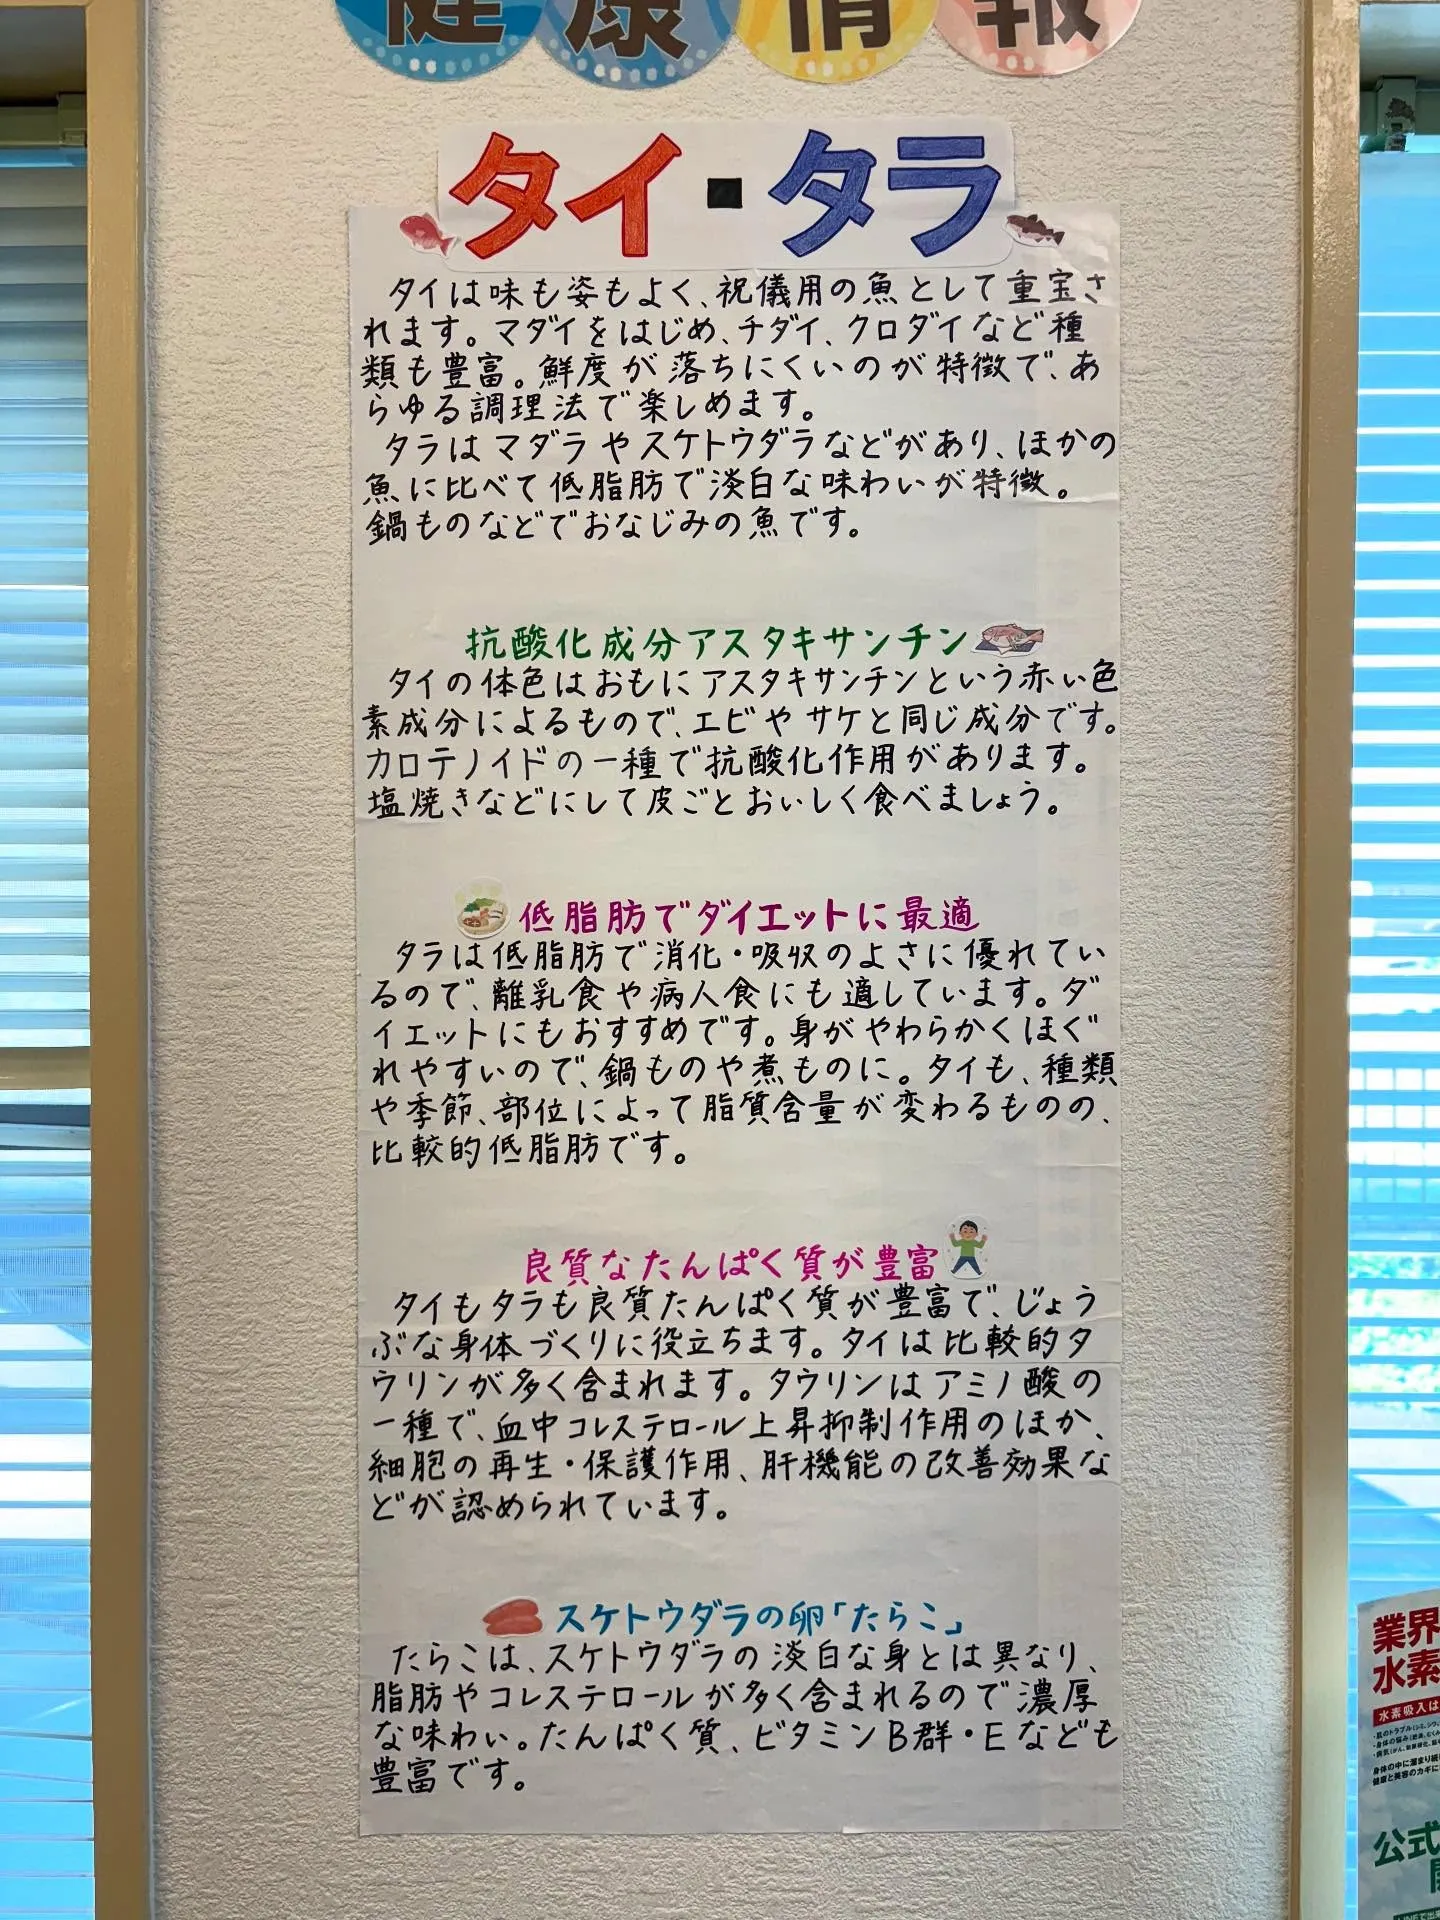 健康情報
タイ・タラ
タイは味も姿もよく、祝儀用の魚として重宝さ
れます。マダイをはじめ、チダイ、クロダイなど種
類も豊富。鮮度が落ちにくいのが特徴で、あ
らゆる調理法で楽しめます。
タラはマダラやスケトウダラなどがあり、ほかの
魚に比べて低脂肪で淡白な味わいが特徴。
鍋ものなどでおなじみの魚です。
抗酸化成分アスタキサンチン
タイの体色はおもにアスタキサンチンという赤い色
素成分によるもので、エビやサケと同じ成分です。
カロテノイドの一種で抗酸化作用があります。
塩焼きなどにして皮ごとおいしく食べましょう。
低脂肪でダイエットに最適
タラは低脂肪で消化・吸収のよさに優れてい
るので、離乳食や病人食にも適しています。ダ
イエットにもおすすめです。身がやわらかくほぐ
れやすいので、鍋ものや煮ものに。タイも、種類
や季節、部位によって脂質含量が変わるものの、
比較的低脂肪です。
良質なたんぱく質が豊富
タイもタラも良質たんぱく質が豊富で、じょう
ぶな身体づくりに役立ちます。タイは比較的タ
ウリンが多く含まれます。タウリンはアミノ酸の
一種で、血中コレステロール上昇抑制作用のほか、
細胞の再生・保護作用、肝機能の改善効果な
どが認められています。
スケトウダラの卵「たらこ」
たらこは、スケトウダラの淡白な身とは異なり、
脂肪やコレステロールが多く含まれるので濃厚
な味わい。たんぱく質、ビタミンB群・Eなども
豊富です。
業界
水素
水素吸入は
身体の中に溜まり続
健康と美容のカギに
公式